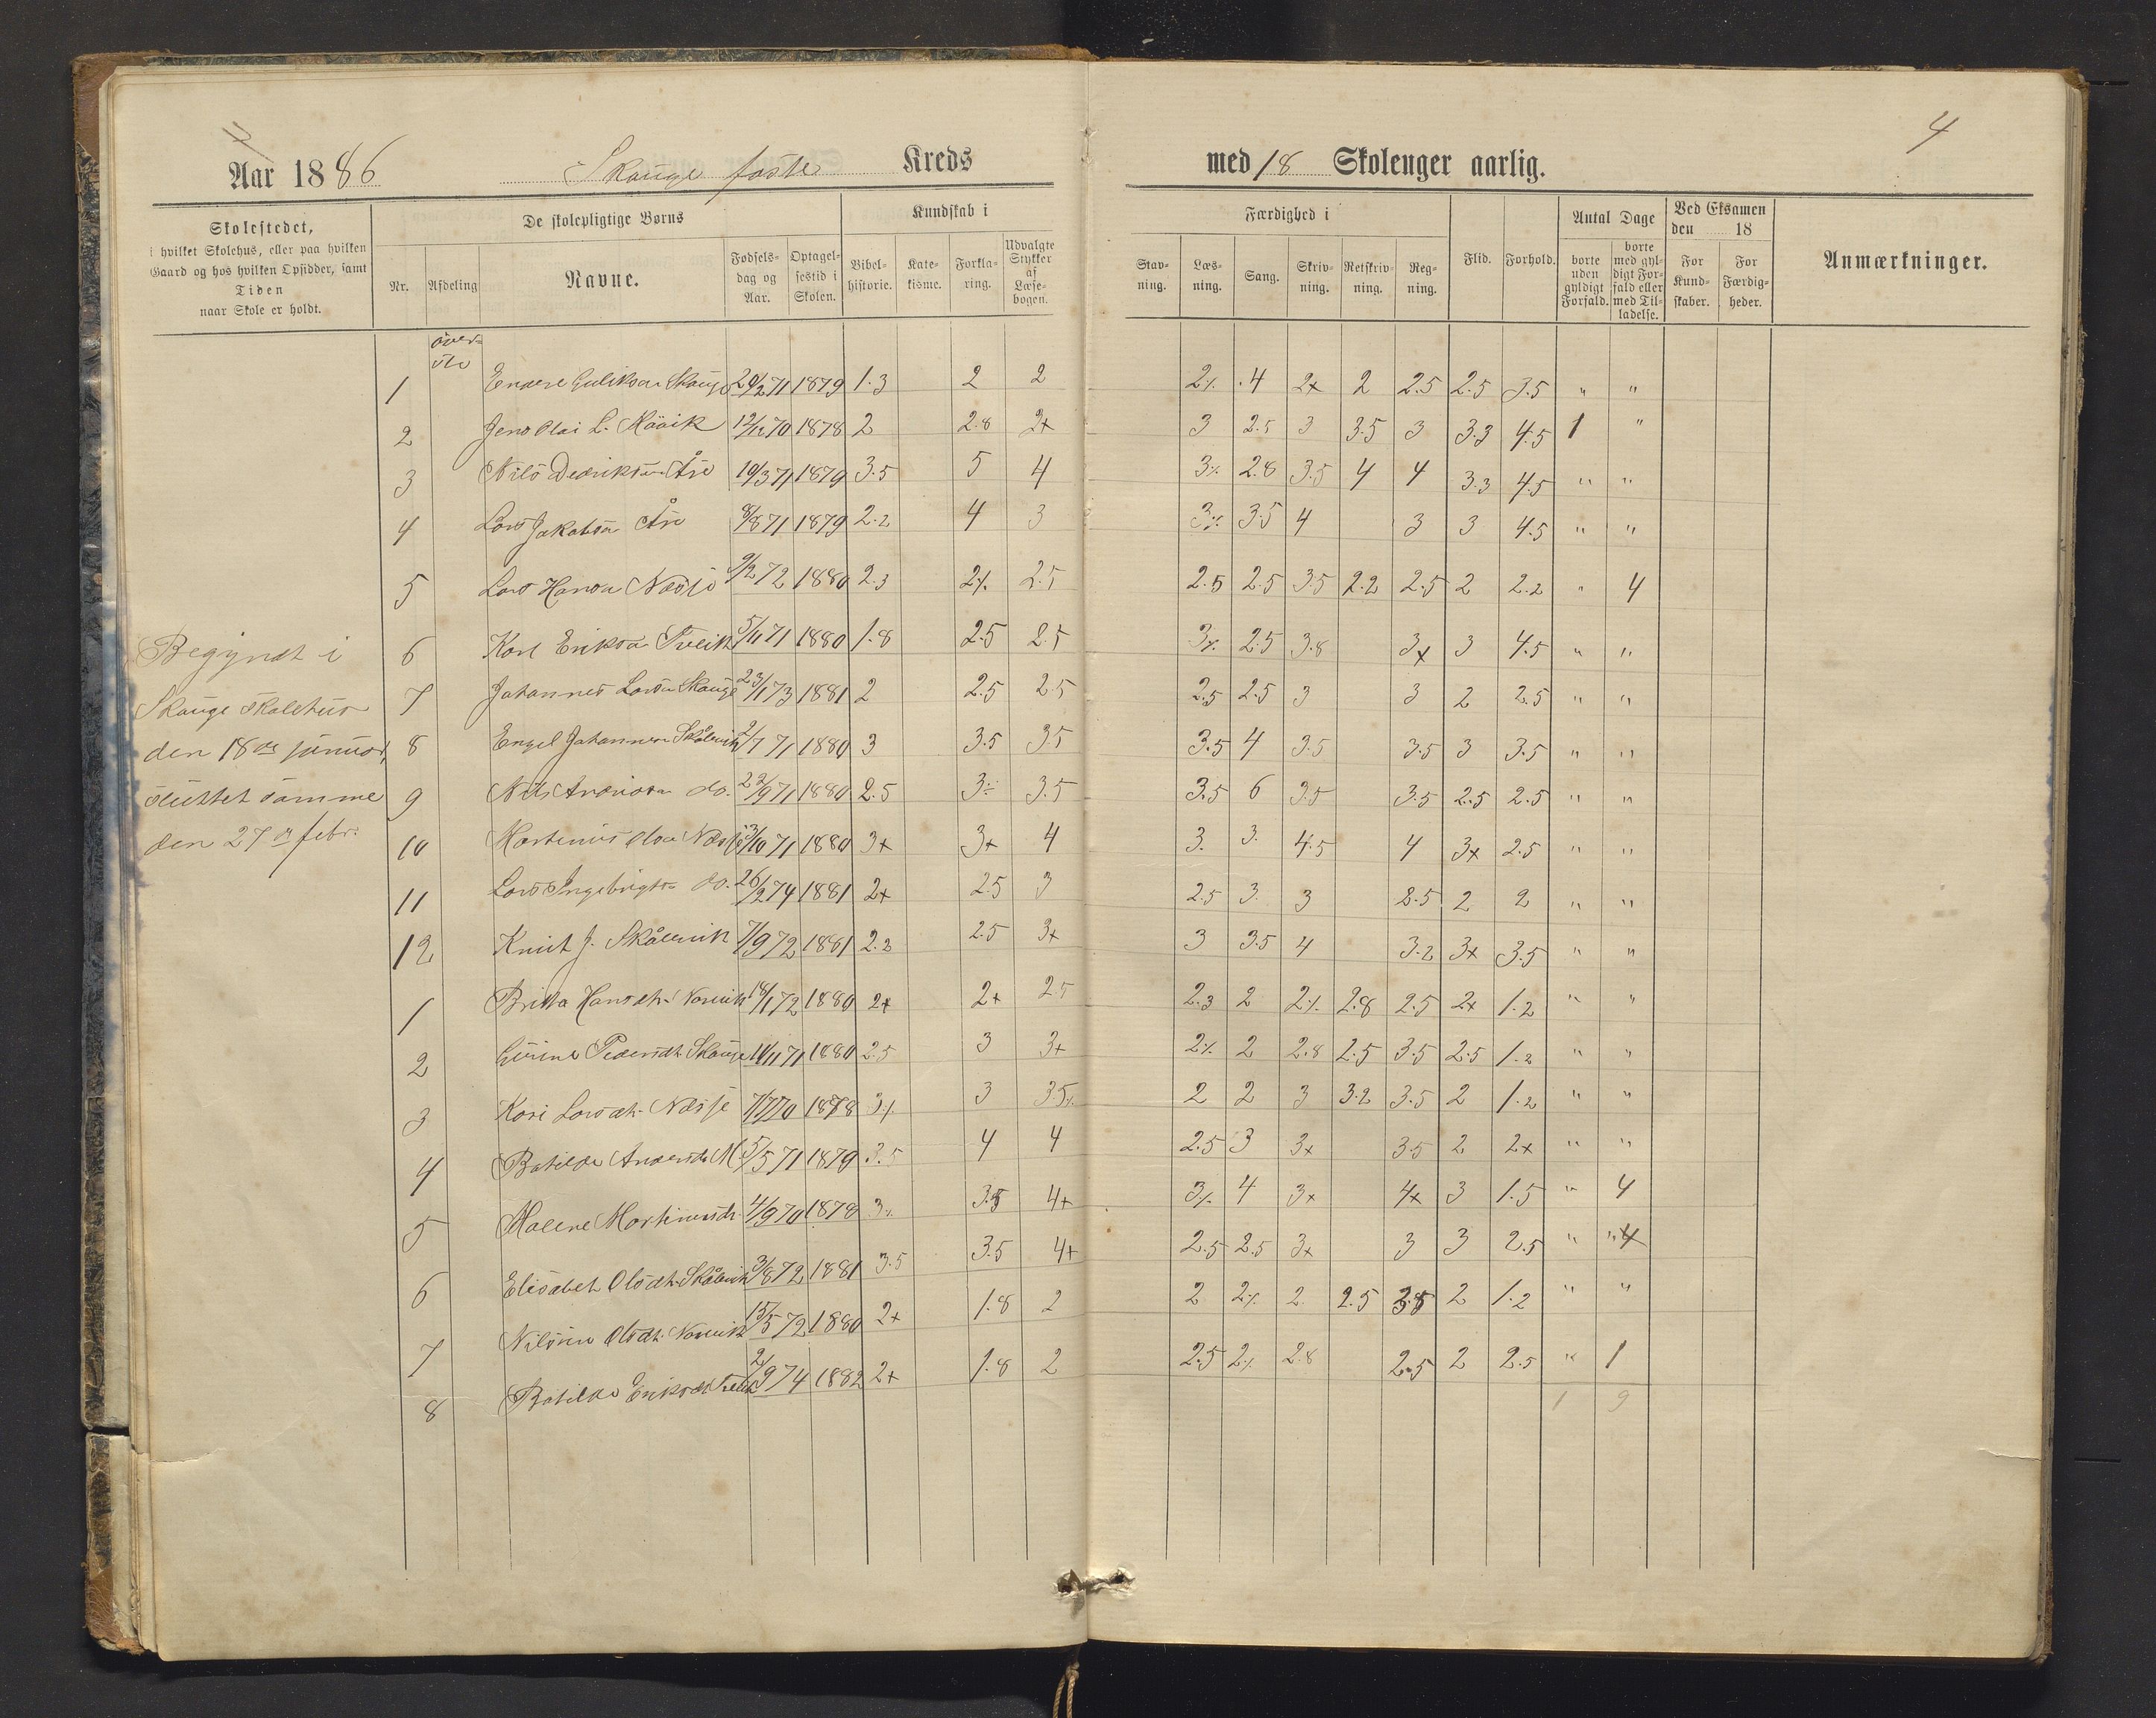 4
Aar 1886 Skauge faste Kreds med 18 Skoleuger aarlig.
4
Skolestedet,
i hvilket Skolehus, eller paa hvilken
Gaard og hos hvilken Opsidder, samt
Tiden
naar Skole er holdt.
De skolepligtige Børns
Nr.
Afdeling
Navne.
Fødsels-
dag og
Aar.
Optagel-
sestid i
Skolen.
Kundskab i
Bibel-
historie.
Kate-
kisme.
Forkla-
ring.
Udvalgte
Stykker
af
Læse-
bogen.
Færdighed i
Stav-
ning.
Læs-
ning.
Sang.
Skriv-
ning.
Retskriv-
ning.
Reg-
ning.
Flid.
Forhold.
Antal Dage
borte
uden
gyldigt
Forfald.
borte
med gyl-
digt For-
fald eller
med Til-
ladelse.
Ved Eksamen
den 18
For
Kund-
skaber.
For
Færdig-
heder.
Anmærkninger.
över-
ste
Begyndt i
Skauge skolehus
den 18de januar,
sluttet samme
den 27de febr.
1 Skauge 29/2 71 1879 1.3 2 2 2% 4 2x 2 2.5 2.5 3.5 " "
2 Jens Olai L. 12/12 70 1878 2 2.8 2x 3 2.5 3 3.5 3 3.3 4.5 1 "
3 Nils 19/3 71 1879 3.5 5 4 3% 2.8 3.5 4 4 3.3 4.5 " "
4 Lars Jakobsen 8/8 71 1879 2.2 4 3 3% 3.5 4 3 3 4.5 " "
5 Lars Hansen Næsje 9/2 72 1880 2.3 2% 2.5 2.5 2.5 3.5 2.2 2.5 2 2.2 " 4
6 Karl Eriksen 5/11 71 1880 1.8 2.5 2.5 3% 2.5 3.8 3x 3 4.5 " "
7 Johannes Larsen Skauge 23/1 73 1881 2 2.5 2.5 2.5 2.5 3 3 2 2.5 " "
8 Engel Johannesen Skålevik 2/7 71 1880 3 3.5 3.5 3.5 4 3.5 3.5 3 3.5 " "
9 Nils do. 22/9 71 1880 2.5 3% 3.5 3.5 6 3.5 3.5 2.5 2.5 " "
10 Martinus Olsen Næsje 3/10 71 1880 3x 3x 4 3. 3. 4.5 4 3x 2.5 " "
11 Lars Ingebrigtsen do. 26/2 74 1881 2x 2.5 3 2.5 3. 3 2.5 2 2 " "
12 Knut J. Skålevik 7/9 72 1881 2.2 2.5 3x 3 3.5 4 3.2 3x 3.5 " "
1 Britha Hansdtr. 18/1 72 1880 2x 2x 2.5 2.3 2 2% 2.8 2.5 2x 1.2 " "
2 Pedersdtr. Skauge 14/11 71 1880 2.5 3 3x 2% 2 2.8 2.5 3.5 2.5 1.2 " "
3 Kari Larsdtr. Næsje 7/7 70 1878 3% 3 3.5% 2 2 3 3.2 3.5 2 1.2 " "
4 Batilde Andersdtr. 5/5 71 1879 3.5 4 4 2.5 3 3x 3.5 2 2x " "
5 Malene Martinusdtr. 4/9 70 1878 3% 3.5 4x 3% 4 3x 4x 3 1.5 " 4
6 Elisabet Olsdtr. Skålevik 3/8 72 1881 3.5 3.5 4x 2.5 2.5 3x 3 3 2.5 " "
7 Nilsine Olsdtr. 15/5 72 1880 2x 1.8 2 2 2% 2. 2.5 2 1.2 " "
8 Batilde Eriksdtr. 2/9 74 1882 2x 1.8 2 2.5 2% 2.8 2.5 2 2.5 " 1
1 9